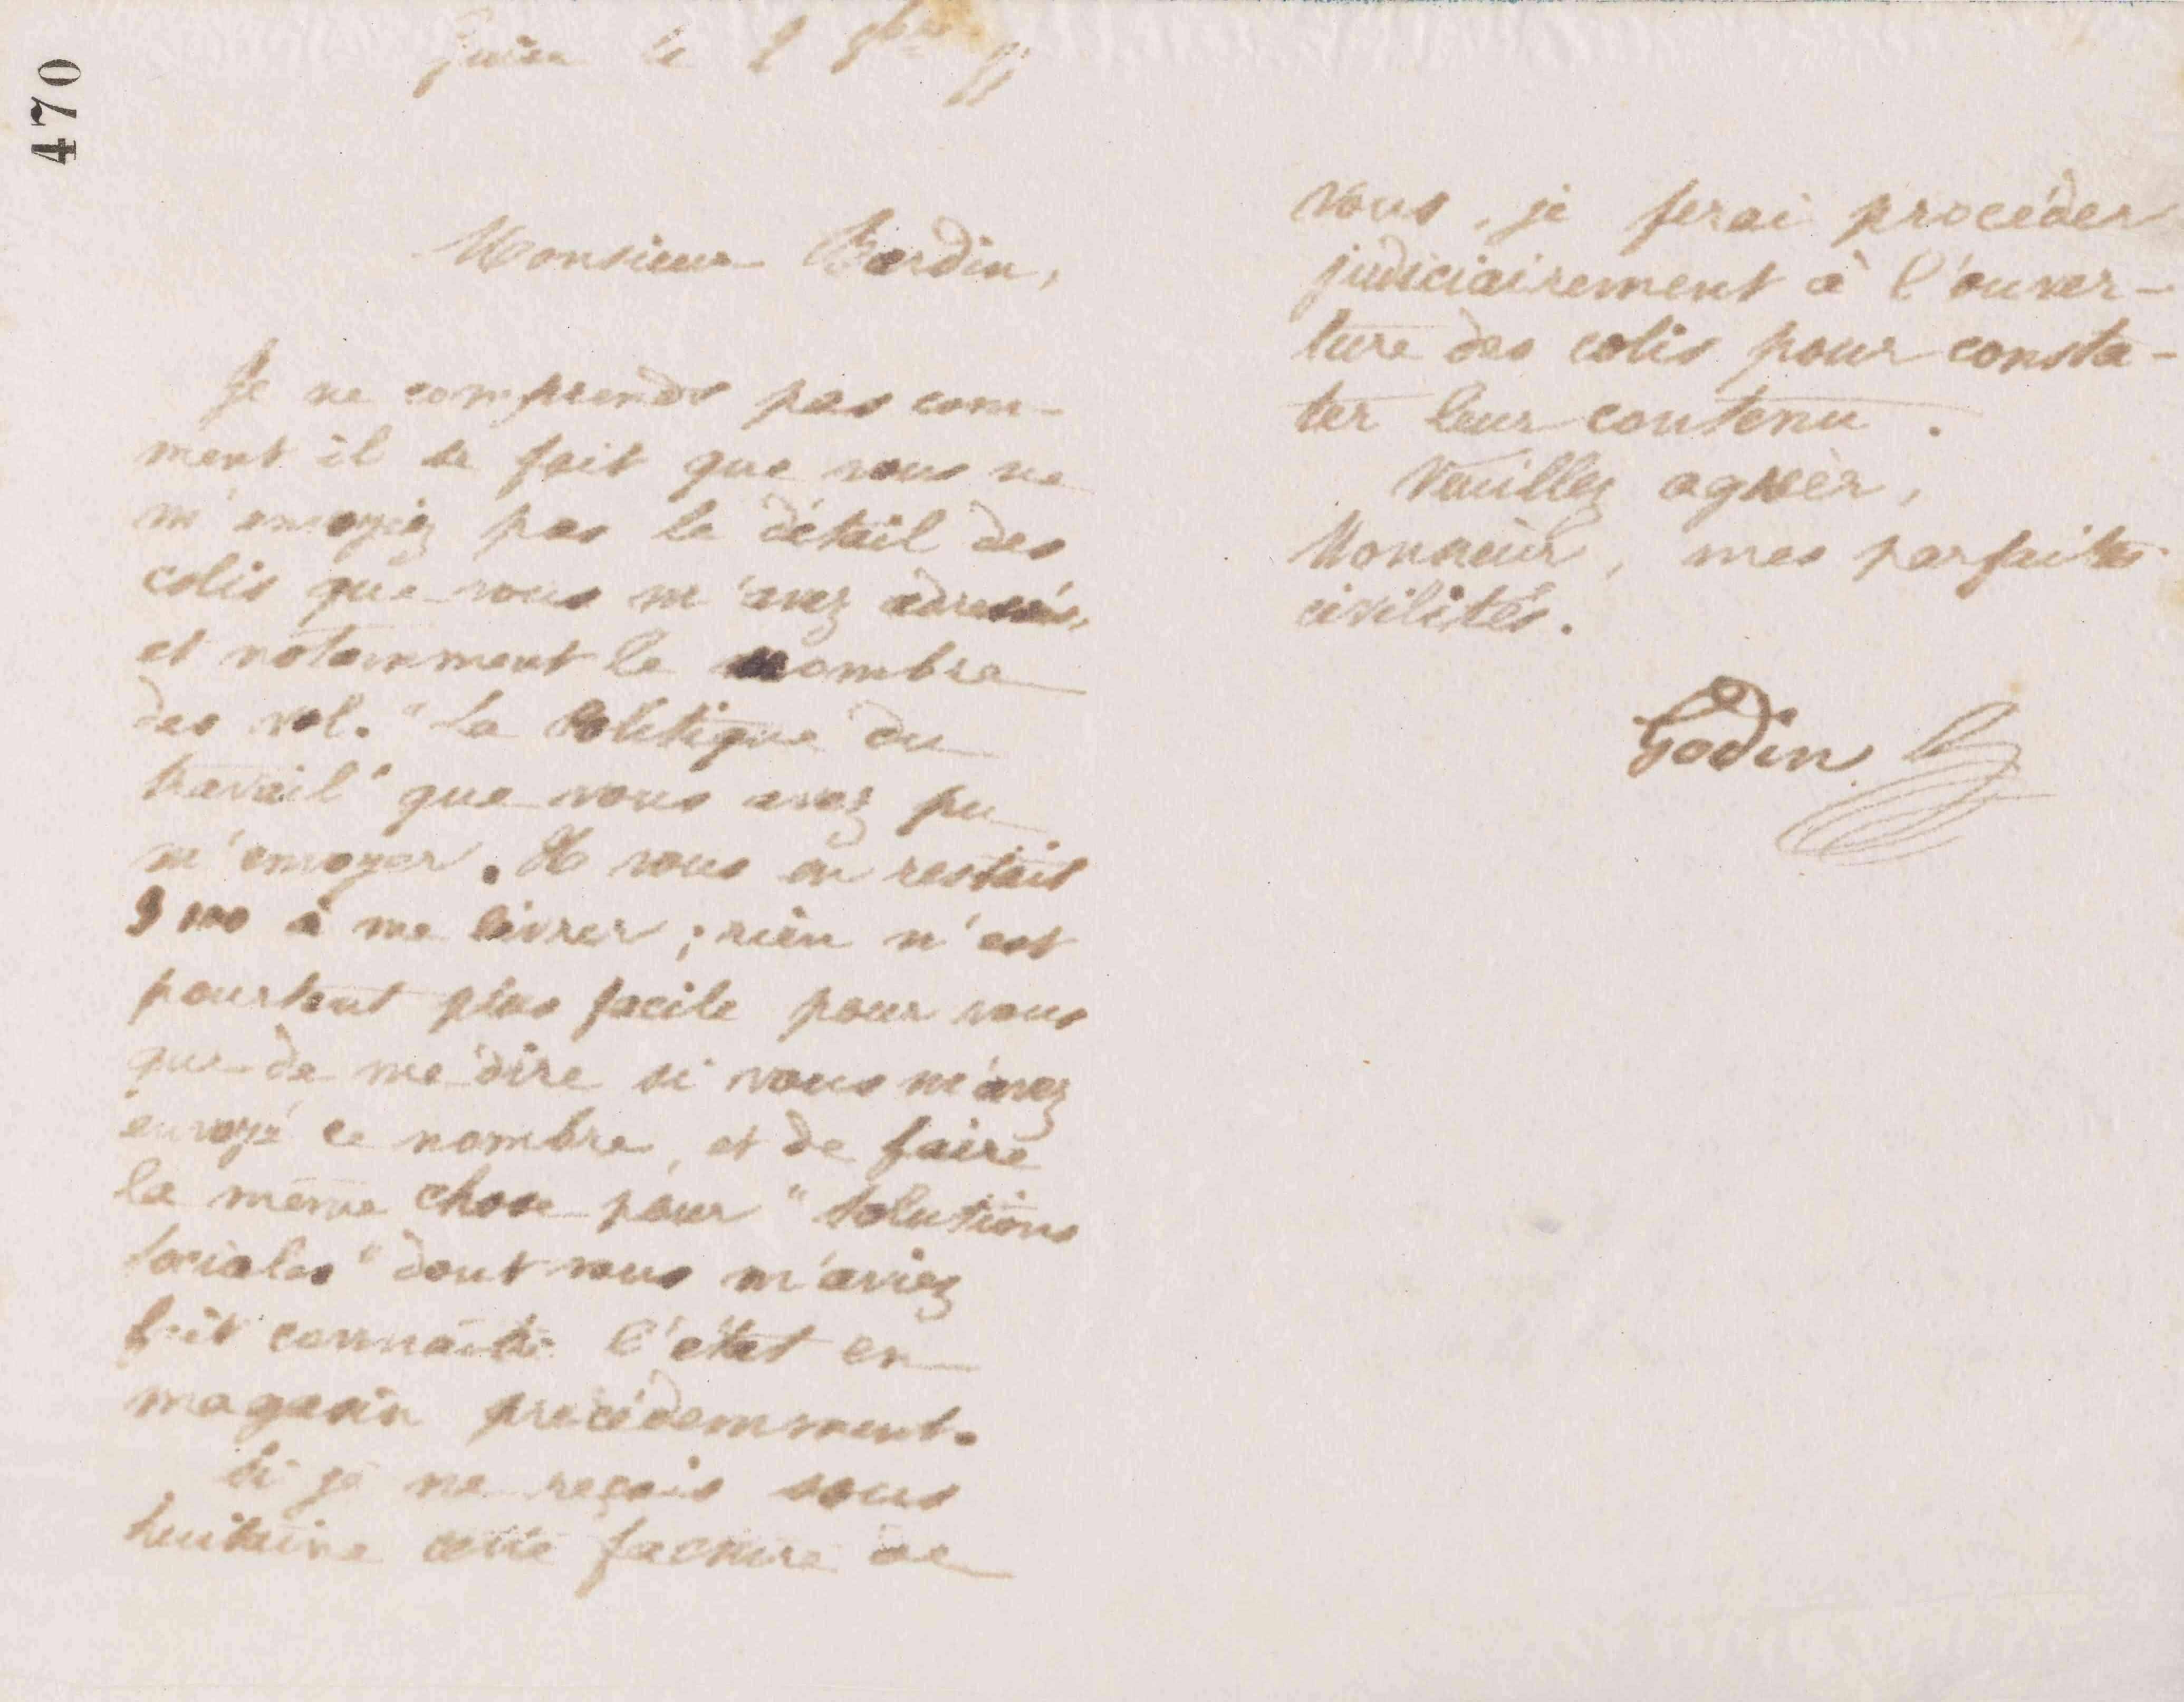 470
Guise le 2 9bre
Monsieur Bardin,
Je ne comprends pas com-
ment il se fait que vous ne
m'envoyiez pas le détail des
colis que vous m'avez adressés,
et notamment le nombre
des vol. "La Politique du
travail" que vous avez pu
m'envoyer. Il vous en restait
à me livrer ; rien n'est
pourtant plus facile pour vous
que de me dire si vous m'avez
envoyé ce nombre, et de faire
la même chose pour "Solutions
sociales" dont vous m'aviez
fait connaître l'état en
magasin précédemment.
Si je ne reçois sous
huitaine cette facture de
vous, je ferai procéder
judiciairement à l'ouver-
ture des colis pour consta-
ter leur contenu.
Veuillez agréer,
Monsieur, mes parfaites
civilités.
Godin